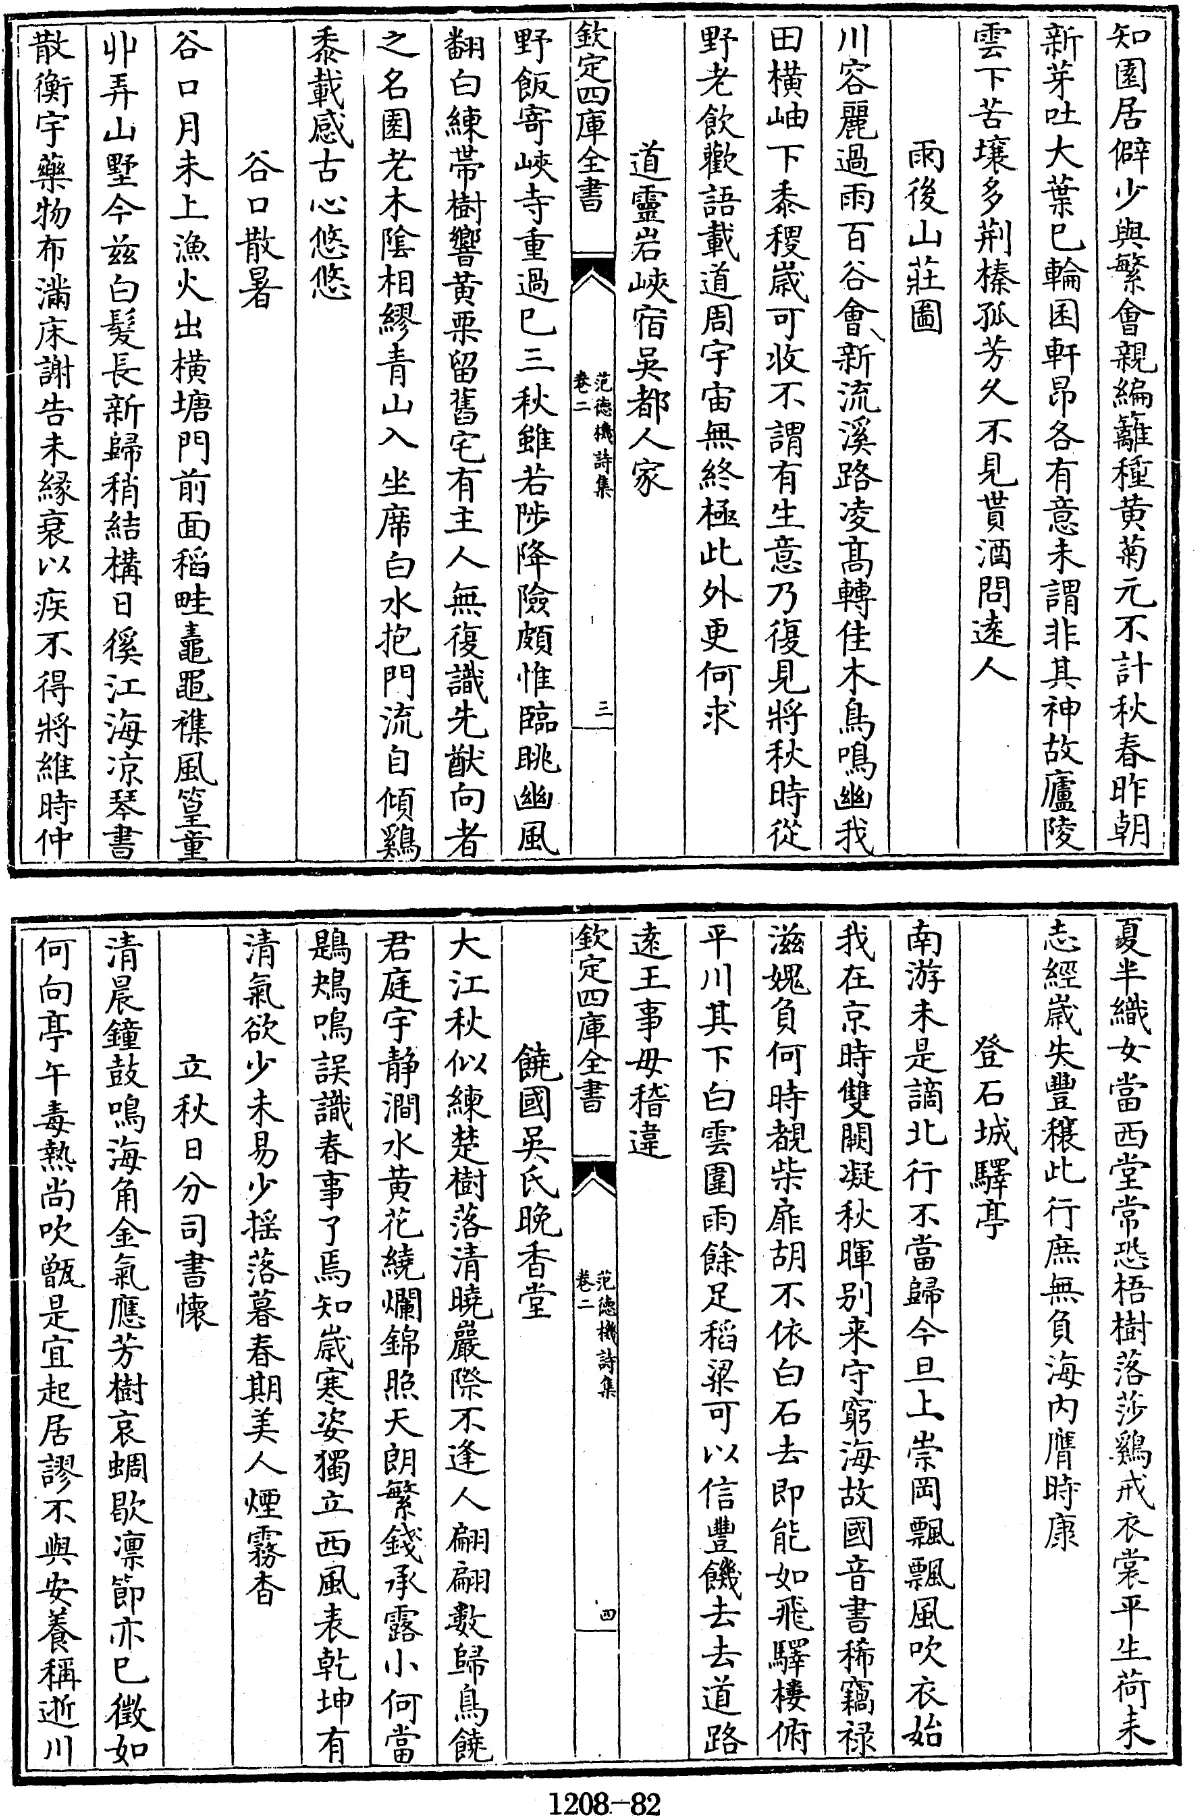 知園居僻少與繁會親編籬種黄菊元不計秋春昨朝
新芽吐大葉已輪囷軒昂各有意未謂非其神故廬陵
雲下苦壤多荆榛孤芳久不見貰酒問逺人
雨後山莊圖
川容麗過雨百谷會新流溪路凌髙轉佳木鳥鳴幽我
田横岫下黍稷歳可收不謂有生意乃復見將秋時從
野老飲歡語載道周宇宙無終極此外更何求
道靈岩峽宿吳都人家
欽定四庫全書
范德機詩集
卷二
三
野飯寄峽寺重過已三秋雖若陟降險頗惟臨眺幽風
翻白練帶樹響黄栗留舊宅有主人無復識先猷向者
之名園老木陰相繆青山入坐席白水抱門流自傾鷄
黍載感古心悠悠
谷口散暑
谷口月未上漁火出横塘門前面稻畦鼃黽襍風篁童
丱弄山墅今兹白髪長新歸稍結構日徯江海凉琴書
散衡宇藥物布滿床謝告未縁衰以疾不得將維時仲
夏半織女當西堂常恐梧樹落莎鷄戒衣裳平生荷耒
志經歳失豐穰此行庶無負海内膺時康
登石城驛亭
南游未是謫北行不當歸今旦上崇岡飄飄風吹衣始
我在京時雙闕凝秋暉别来守窮海故國音書稀竊禄
滋媿負何時覩柴扉胡不依白石去即能如飛驛樓俯
平川其下白雲圍雨餘足稻粱可以信豐饑去去道路
逺王事毋稽違
欽定四庫全書
范德機詩集
卷二
四
饒國吳氏晚香堂
大江秋似練楚樹落清曉嚴際不逢人翩翩數歸鳥饒
君庭宇静澗水黄花繞爛錦照天朗繁錢承露小何當
鶗鴂鳴誤識春事了焉知歳寒姿獨立西風表乾坤有
清氣欲少未易少揺落暮春期美人煙霧杳
立秋日分司書懐
清晨鐘鼓鳴海角金氣應芳樹哀蜩歇凛節亦已徴如
何向亭午毒熱尚吹甑是宜起居謬不與安養稱逝川
1208-82